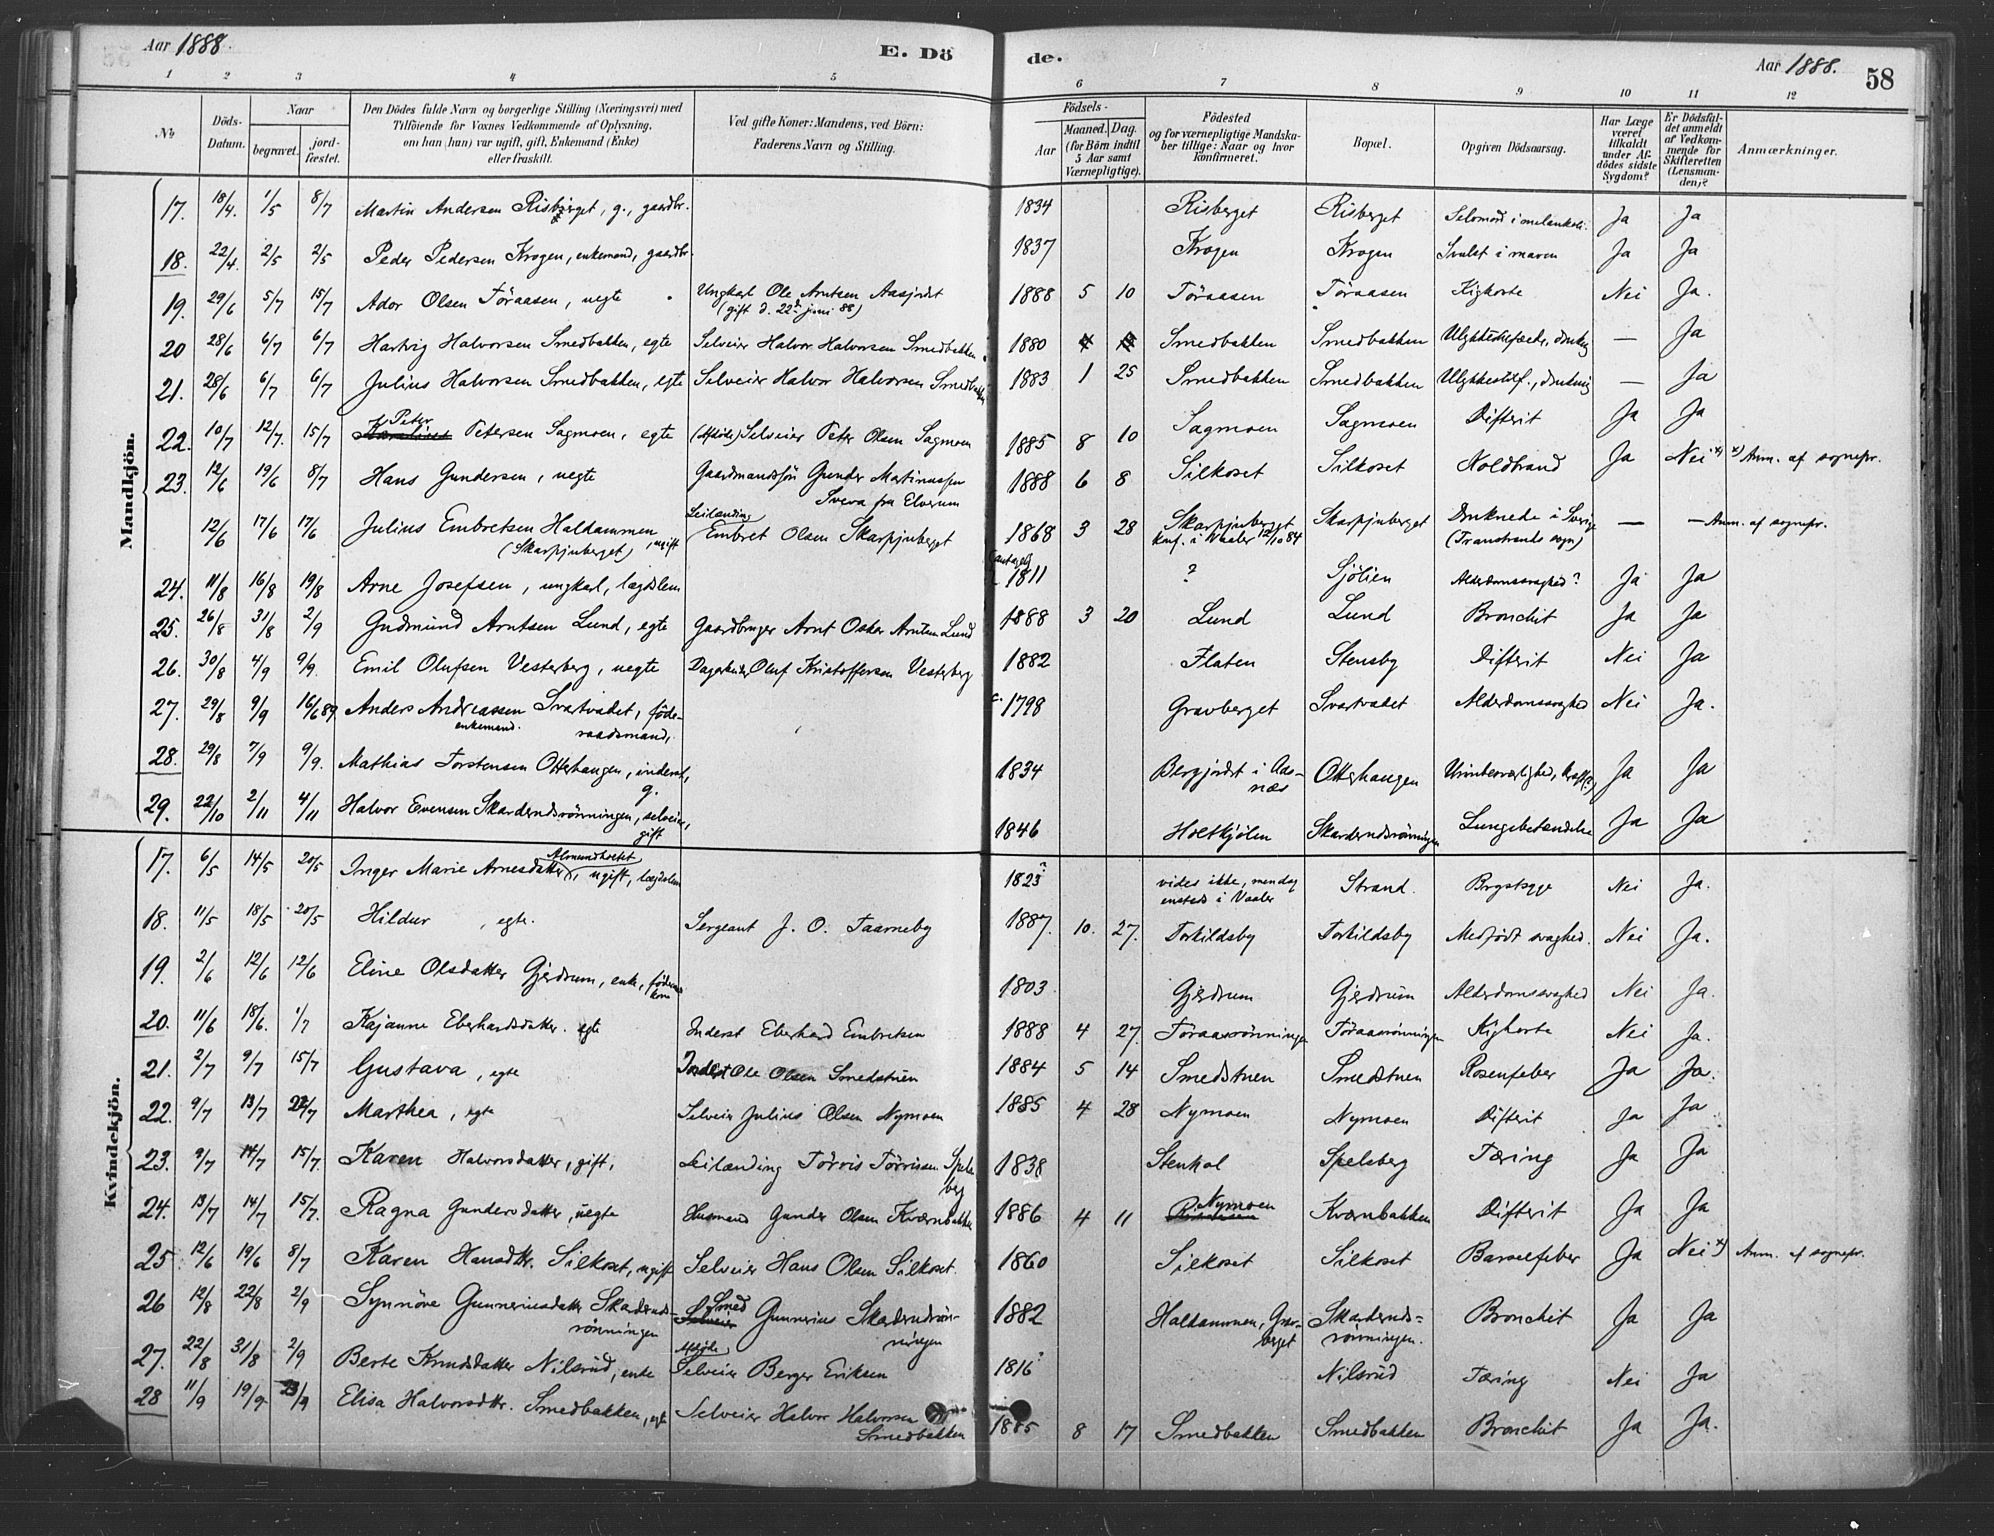 Aar 1888.
E. Dö
de.
Aar 1888.
58
1 2 3 4 5 6 7 8 9 10 11 12
No
Döds-Datum.
Naar
begravet.
jordfæstet.
Den Dödes fulde Navn og borgerlige Stilling (Næringsvei) med
Tilföiende for Voxnes Vedkommende af Oplysning,
om han (hun) var ugift, gift, Enkemand (Enke)
eller fraskilt.
Ved gifte Koner: Mandens, ved Börn:
Faderens Navn og Stilling.
Födsels-
Aar
Maaned. Dag.
(for Börn indtil
5 Aar samt
Værnepligtige).
Födested
og for værnepligtige Mandska-
ber tillige: Naar og hvor
konfirmeret.
Bopæl.
Opgiven Dödsaarsag.
Har Læge
været
tilkaldt
under Af-
dödes sidste
Sygdom?
Er Dödsfal-
det anmeldt
af Vedkom-
mende for
Skifteretten
(Lensman-
den)?
Anmærkninger.
Mandkjön.
17. 18/4. 1/5 8/7 Martin Andersen Risberget, g., gaardbr. 1834 Risberget Risberget Selvmord i melankoli. Ja Ja
18. 22/4. 2/5 2/5 Peder Pedersen Krogen, enkemand, gaardbr. 1837 Krogen Krogen Svulst i maven Ja Ja
19. 29/6 5/7 15/7 Ador Olsen Töraasen, uegte Ungkarl Ole Arntsen Aasjordet
(gift d. 22d juni 88) 1888 5 10 Töraasen Töraasen Kighoste Nei Ja.
20 28/6 6/7 6/7 Hartvig Halvorsen Smedbakken, egte Selveier Halvor Halvorsen Smedbakken 1880 Smedbakken Smedbakken Ulykkestilfælde, drukning — Ja
21. 28/6 6/7 6/7 Julius Halvorsen Smedbakken, egte Selveier Halvor Halvorsen Smedbakken 1883 1 25 Smedbakken Smedbakken Ulykkestilf., drukning — Ja
22. 10/7 12/7. 15/7 Peter Petersen Sagmoen, egte (Afdöde) Selveier Peter Olsen Sagmoen 1885 8 10 Sagmoen Sagmoen Difterit Ja Ja
23. 12/6 19/6 8/7 Hans Gundersen, uegte Gaardmandssön Gunder Martinussen
Svera fra Elverum 1888 6 8 Silkoset Silkoset Koldbrand Ja Nei x) x) Anm. af sognepr.
12/6 17/6 17/6 Julius Embretsen Haldammen
(Skarpjuberget), ugift Leilænding
Embret Olsen Skarpjuberget 1868 3 28 Skarpjuberget
konf. i Vaaler 12/10 84 Skarpjuberget Druknede i Sverige
(Transtrands sogn) — — Anm. af sognepr.
24. 11/8 16/8 19/8 Arne Josefsen, ungkarl, lægdslem (antagelig)
1811 ? Sjölien Alderdomssvaghed? Ja Ja
25. 26/8 31/8 2/9 Gudmund Arntsen Lund, egte Gaardbruger Arnt Oskar Arntsen Lund 1888 3 20 Lund Lund Bronchit Ja Ja
26. 30/8 4/9 9/9. Emil Olufsen Vesterberg, uegte Dagarbeider Oluf Kristoffersen Vesterberg 1882 Flaten Stensby Difterit Nei Ja
27. 29/8 9/9 16/6 89. Anders Andreassen Svartvadet, föde-
enkemand. raadsmand, c. 1798 Gravberget Svartvadet Alderdomssvaghed Nei Ja.
28. 29/8 7/9 9/9. Mathias Torstensen Otterhaugen, inderst,
g. 1834 Bergjordet i Aas-
næs Otterhaugen Ja Ja
29. 22/10 2/11 4/11 Halvor Evensen Skarderudsrönningen, selveier,
gift 1846 Holtkjölen Skarderudsrönningen Lungebetændelse Ja Ja
Kvindekjön.
17. 6/5 14/5 20/5 Inger Marie Arnesdatter Almundholtet, ugift, lægdslem 1823? vides ikke, men dog
ensteds i Vaaler Strand. Brystsyge Nei Ja.
18. 11/5 18/5 20/5 Hildur, egte. Sergeant J. O. Taarneby 1887. 10. 27. Torkildsby Torkildsby Medfödt svaghed. Nei Ja.
19. 2/6 12/6 12/6 Eline Olsdatter Gjerdrum, enke, föderaads
kone 1803 Gjerdrum Gjerdrum Alderdomssvaghed Nei Ja.
20. 11/6 18/6. 1/7 Kajanne Eberhardsdatter. egte Inderst Eberhard Embretsen 1888 4 27. Töraasrönningen Töraasrönningen Kighoste Nei Ja.
21. 2/7 9/7 15/7 Gustava, egte Inderst Ole Olsen Smedstuen 1884 5 14 Smedstuen Smedstuen Rosenfeber Ja Ja.
22. 9/7 13/7 22/7 Marthea, egte Selveier Julius Olsen Nymoen 1885 4 28 Nymoen Nymoen Difterit Ja Ja
23. 9/7 14/7 15/7. Karen Halvorsdatter, gift, Leilænding Törris Törrissen Spels-
berg 1838 Stenkol Spelsberg Tæring Ja Ja
24. 13/7 14/7 15/7. Ragna Gundersdatter, uegte Husmand Gunder Olsen Kværnbakken 1886 4 11 Nymoen Kværnbakken Difterit Ja Ja
25. 12/6 19/6 8/7 Karen Hansdtr. Silkoset, ugift Selveier Hans Olsen Silkoset. 1860 Silkoset Silkoset Barselfeber Ja Nei x) Anm. af sognepr.
26 12/8 22/8 2/9 Synnöve Gunneriusdatter Skarderuds-
rönningen Smed
Selveier Gunnerius Skarderudsrön-
ningen 1882 Haldammen, Grav-
berget Skarderuds-
rönningen. Bronchit Ja Ja
27. 22/8 31/8 2/9 Berte Knudsdatter Nilsrud, enke Afdöde
Selveier Berger Eriksen 1816? Nilsrud Tæring Nei Ja
28 11/9 19/9. 23/9 Elisa Halvorsdtr. Smedbakken, egte Selveier Halvor Halvorsen
Smedbakken 1885 8 17 Smedbakken Smedbakken Bronchit Ja Ja.